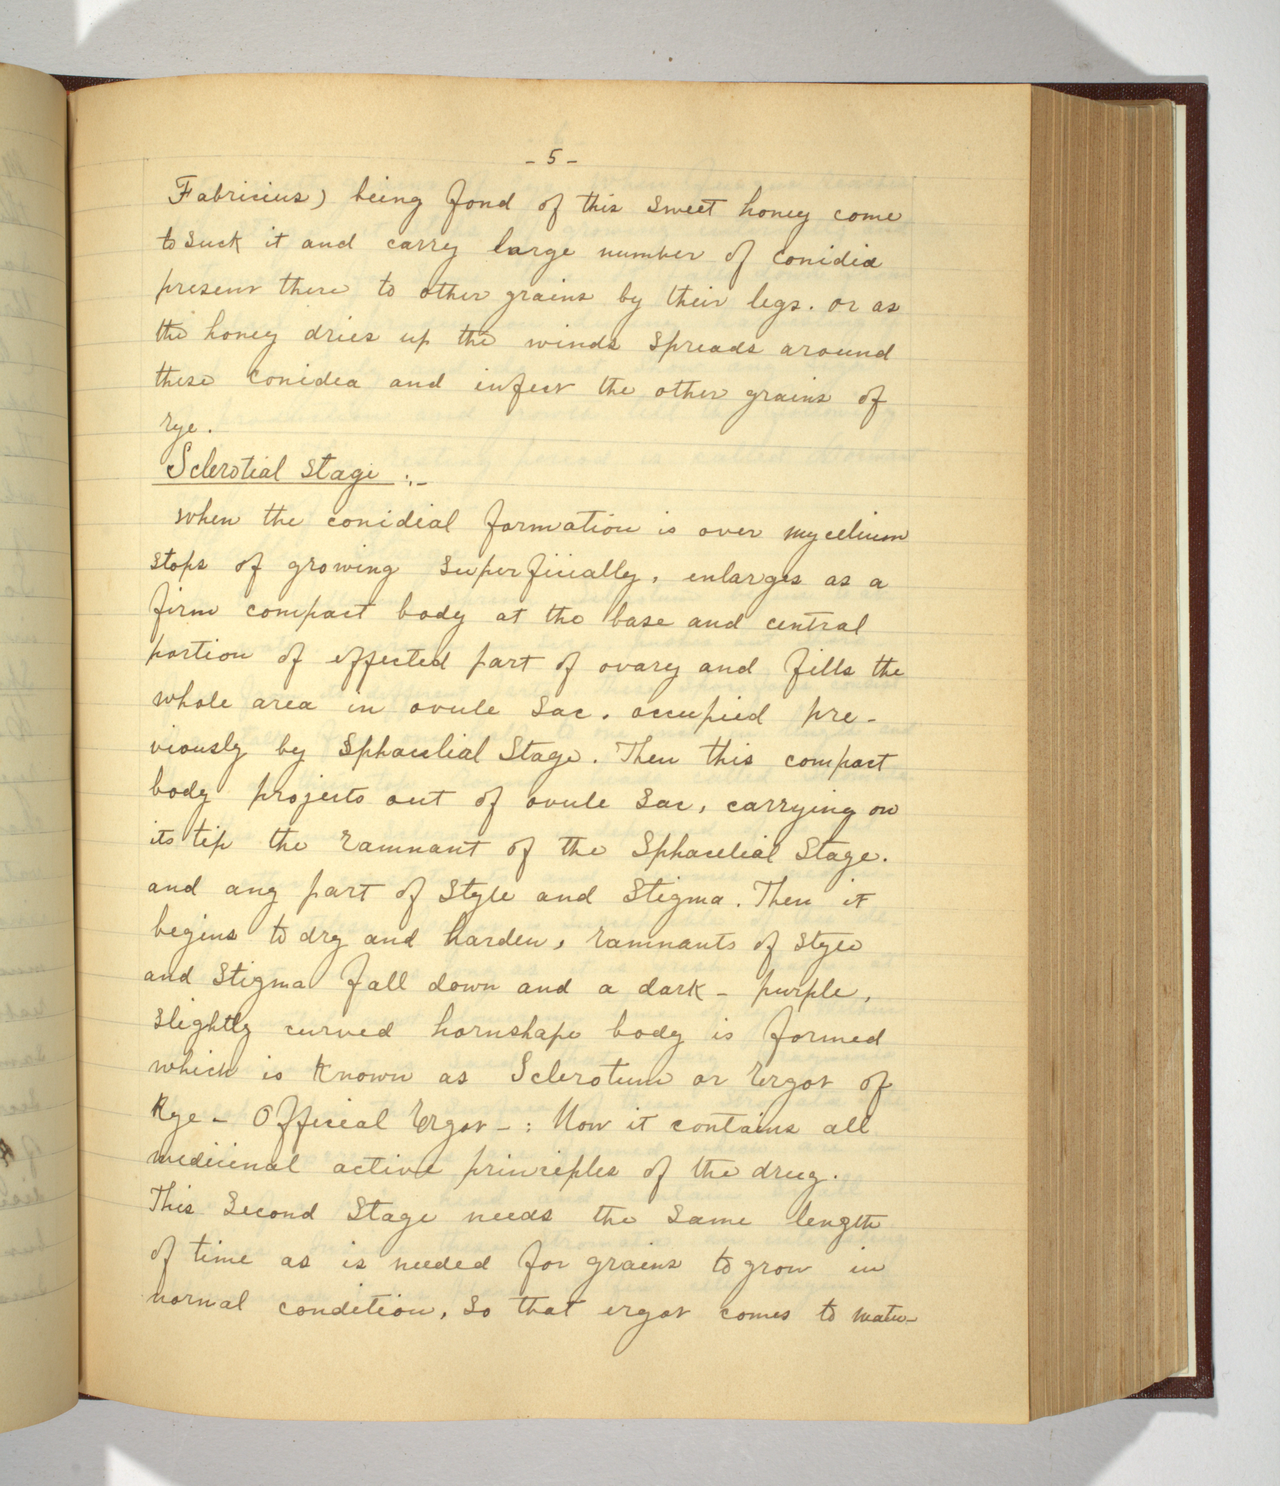 - 5 -
Fabricius) being fond of this sweet honey come
to suck it and carry large number of conidia
present there to other grains by their legs. or as
the honey dries up the winds spreads around
these conidea and infect the other grains of
rye.
Sclerotial Stage :-
when the conidial formation is over mycelium
stops of growing superficially, enlarges as a
firm compact body at the base and central
portion of effected part of ovary and fills the
whole area in ovule sac. occupied pre-
viously by Sphacelial Stage. Then this compact
body projects out of ovule sac, carrying on
its tip the ramnant of the Sphacelial Stage.
and any part of style and stigma. Then it
begins to dry and harden, ramnants of style
and stigma fall down and a dark - purple,
slightly curved hornshape body is formed
which is known as Sclerotum or Ergot of
Rye - Official Ergot - : Now it contains all
medicinal active principles of the drug.
This Second Stage needs the same length
of time as is needed for grains to grow in
normal condition, so that ergot comes to matu-